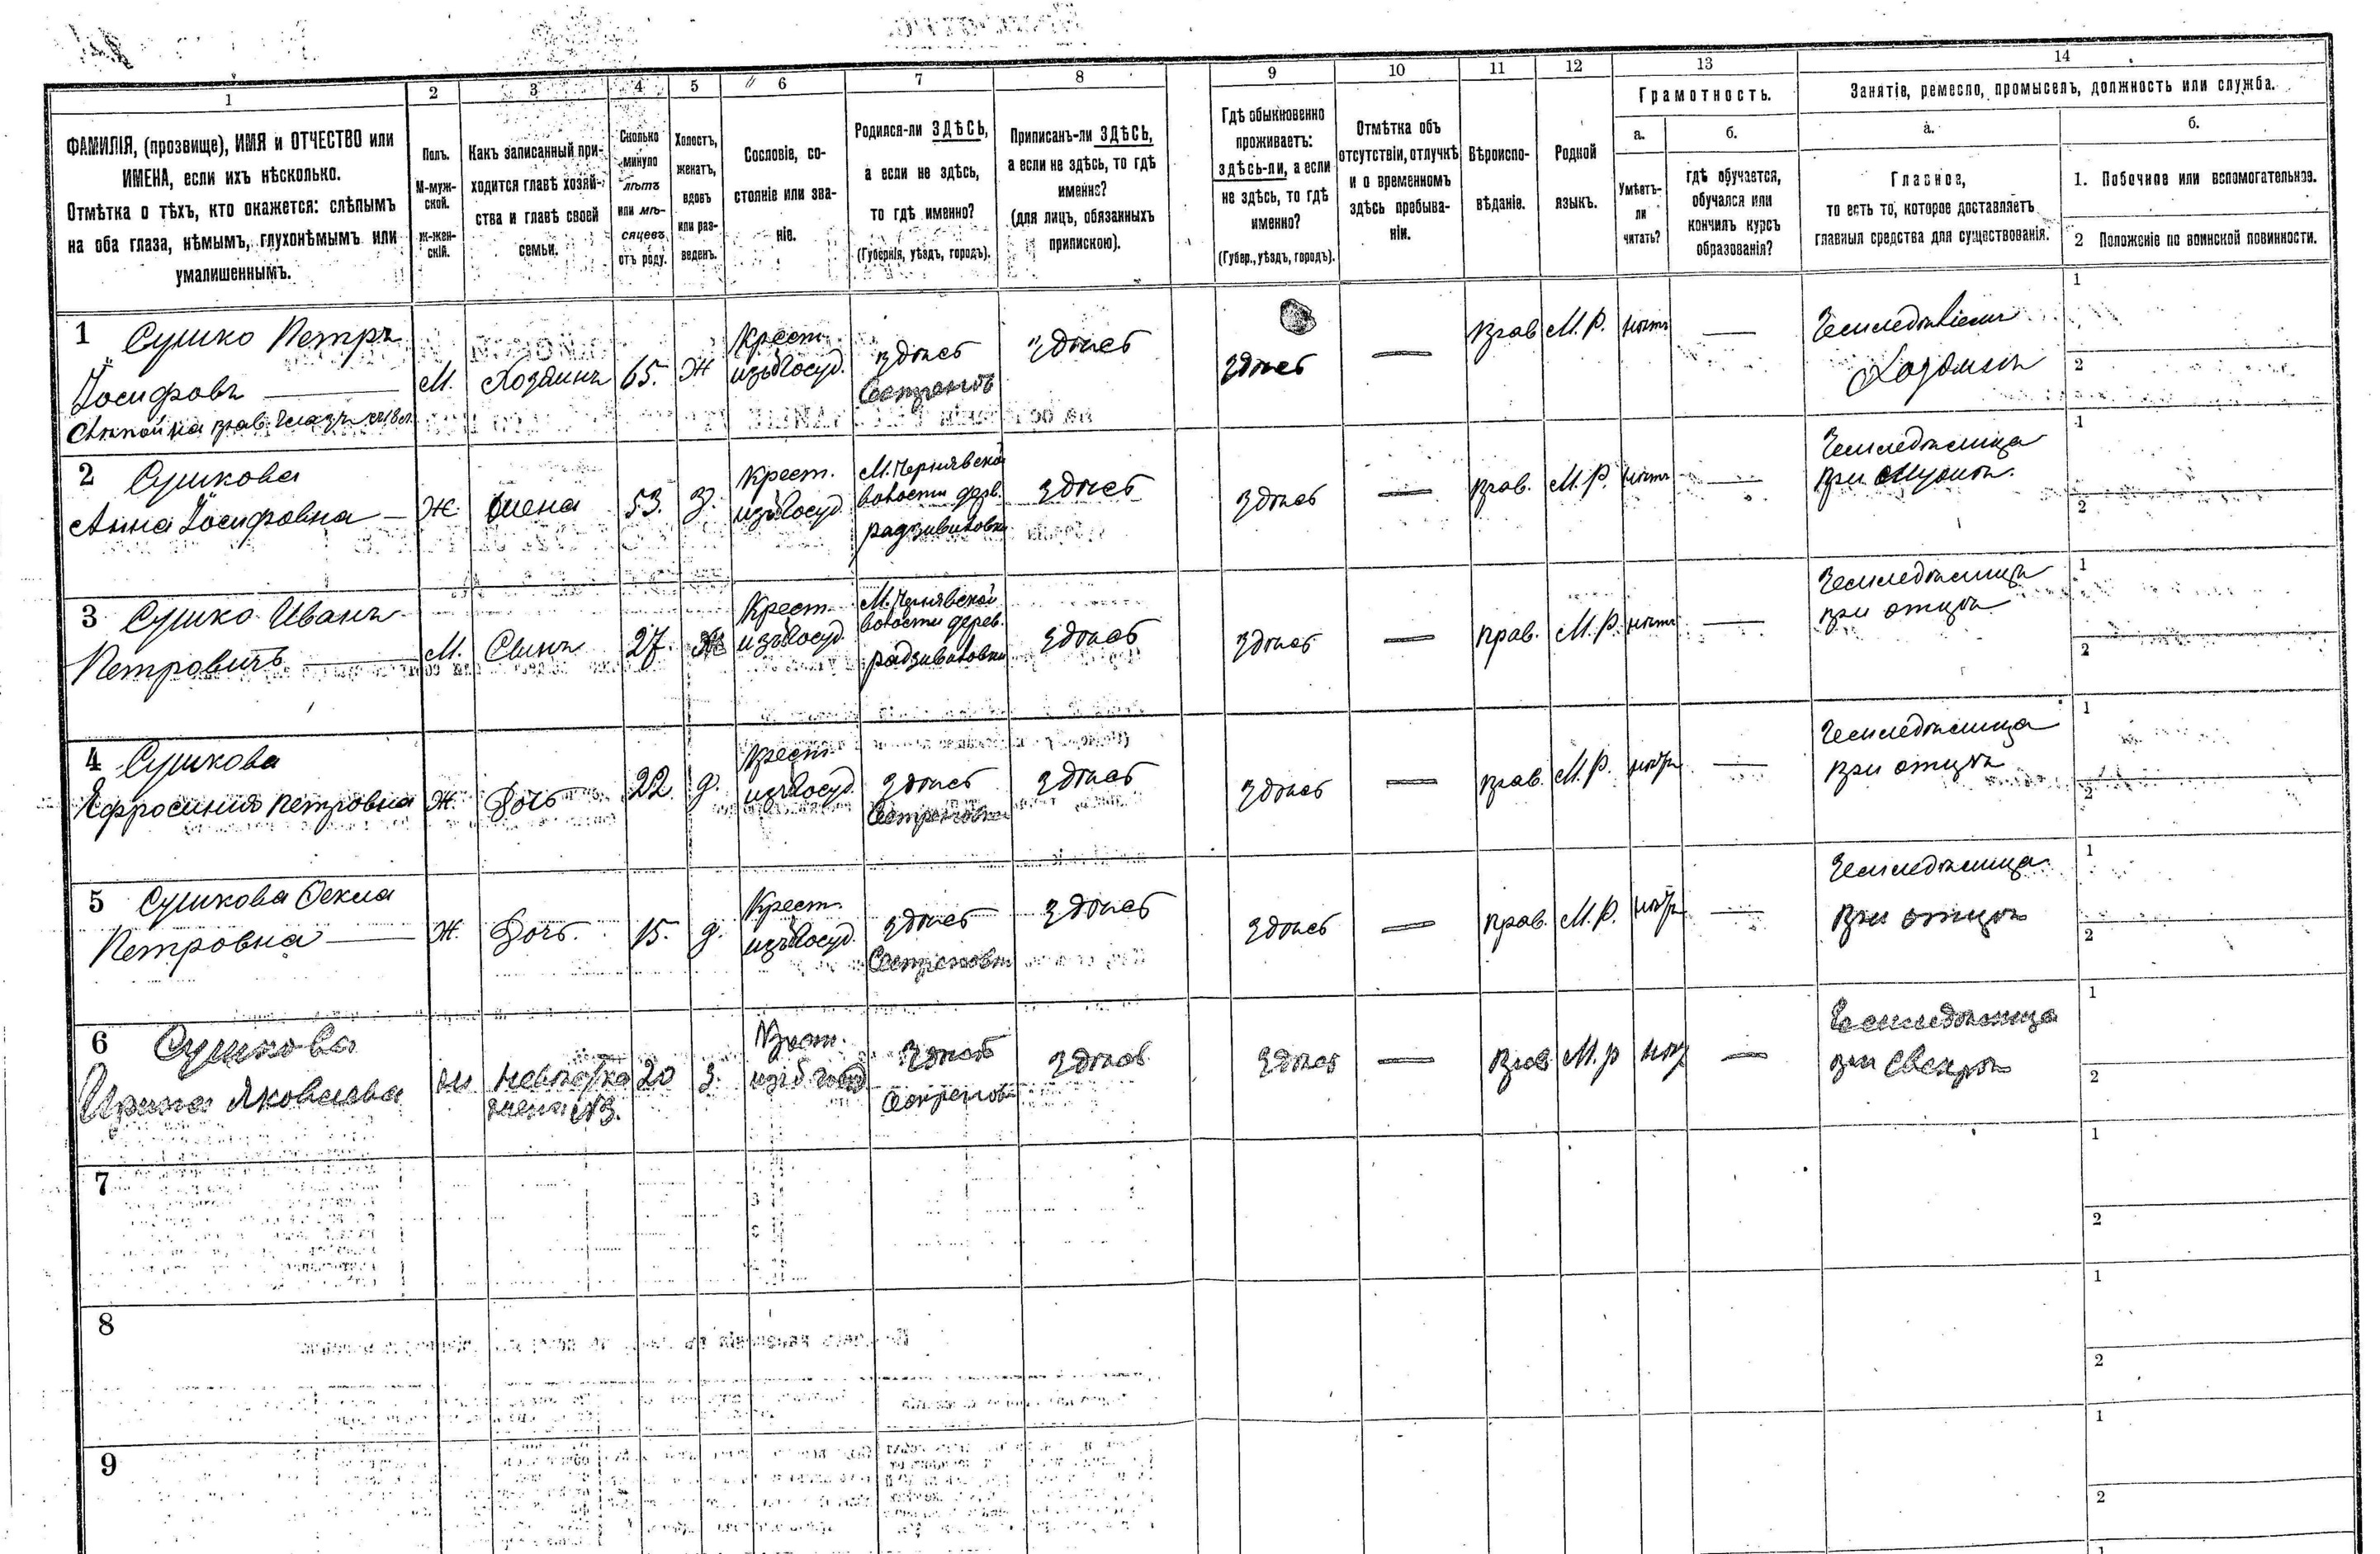 1
2
3
4
5
6
7
8
9
10
11
12
13
14
ФАМИЛІЯ, (прозвище), ИМЯ и ОТЧЕСТВО или
ИМЕНА, если ихъ нѣсколько.
Отмѣтка о тѣхъ, кто окажется: слѣпымъ
на оба глаза, нѣмымъ, глухонѣмымъ или
умалишеннымъ.
Полъ.
М-муж-
ской.
Ж-жен-
скій.
Какъ записанный при-
ходится главѣ хозяй-
ства и главѣ своей
семьи.
Сколько
минуло
лѣтъ
или мѣ-
сяцевъ
отъ роду.
Холостъ,
женатъ,
вдовъ
или раз-
веденъ.
Сословіе, со-
стояніе или зва-
ніе.
Родился-ли ЗДѢСЬ,
а если не здѣсь,
то гдѣ именно?
(Губернія, уѣздъ, городъ).
Приписанъ-ли ЗДѢСЬ,
а если не здѣсь, то гдѣ
именно?
(для лицъ, обязанныхъ
припискою).
Гдѣ обыкновенно
проживаетъ:
здѣсь-ли, а если
не здѣсь, то гдѣ
именно?
(Губер., уѣздъ, городъ).
Отмѣтка объ
отсутствіи, отлучкѣ
и о временномъ
здѣсь пребыва-
ніи.
Вѣроиспо-
вѣданіе.
Родной
языкъ.
Грамотность.
а.
Умѣетъ-
ли
читать?
б.
гдѣ обучается,
обучался или
кончилъ курсъ
образованія?
Занятіе, ремесло, промыселъ, должность или служба.
а.
Главное,
то есть то, которое доставляетъ
главныя средства для существованія.
б.
1. Побочное или вспомогательное.
2 Положеніе по воинской повинности.
1 Сушко Петръ
Іосифовъ
М. Хозяинъ 65. Ж Крест. изъ Госуд. здѣсь здѣсь здѣсь — прав М. Р. нѣтъ —
Хозяинъ
1
2
2 Сушкова
Анна Іосифовна —
Ж. жена 53. З. Крест. изъ Госуд
М. Чернявской
волости дерв.
здѣсь здѣсь — прав. М. Р. нѣтъ —
Земледѣлица
при мужѣ.
1
2
3 Сушко Иванъ
Петровичъ —
М. Сынъ 27. Крест. изъ Госуд.
М. Чернявской
волости дерев.
здѣсь здѣсь — прав. М. Р. нѣтъ —
при отцѣ
1
2
4 Сушкова
Ефросинія Петровна
Ж. Дочь 22 д. Крест. изъ Госуд здѣсь здѣсь здѣсь — прав. М. Р. нѣтъ —
Земледѣлица
при отцѣ
1
2
5 Сушкова Фекла
Петровна —
Ж. Дочь. 15. д. Крест. изъ Госуд. здѣсь здѣсь здѣсь — прав. М. Р. нѣтъ —
Земледѣлица
при отцѣ
1
2
6 Сушкова
Ирина Яковлева
невѣстка
жена №3.
20 З. здѣсь здѣсь здѣсь — прав М. р нѣт —
Земледѣлица
при свекрѣ
1
2
7
1
2
8
1
2
9
1
2
1